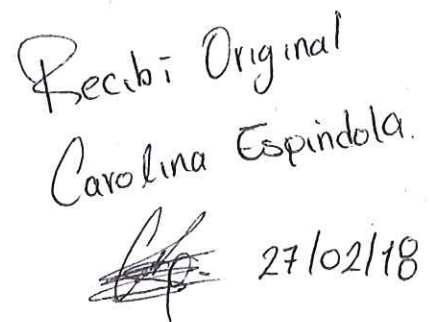 Recibi Original
Carolina Espindola.
27/02/18